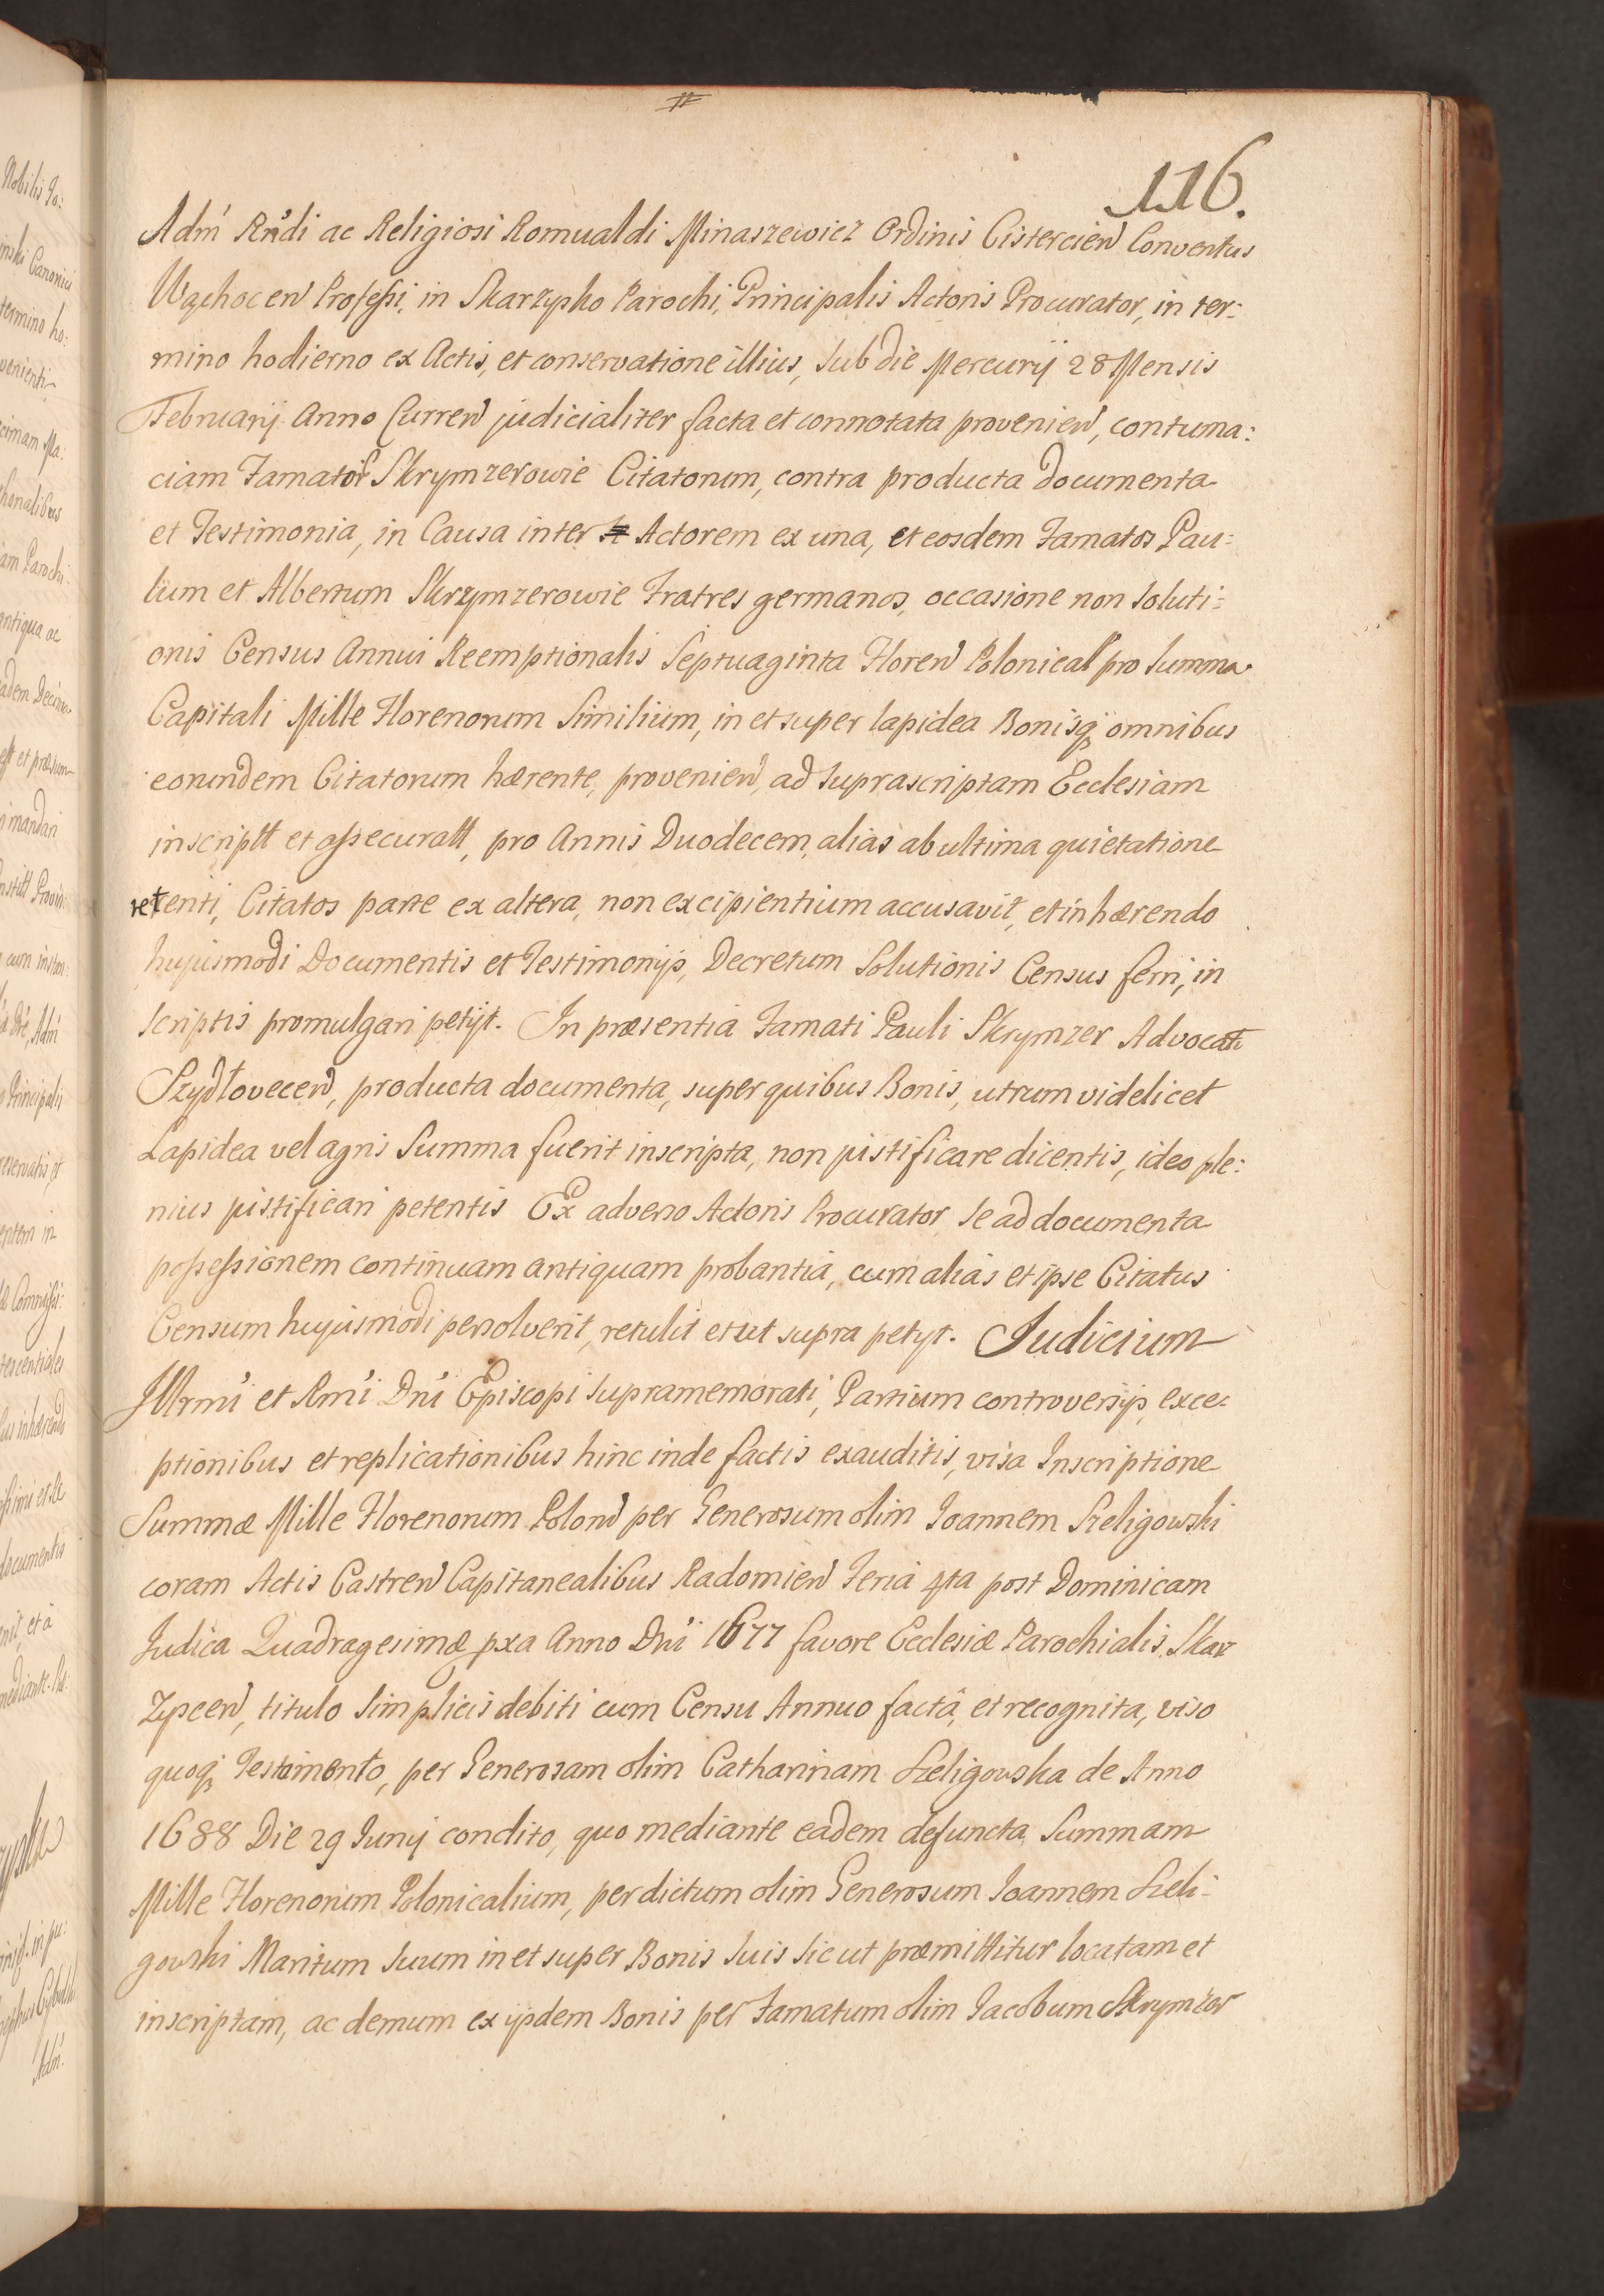 116.
Adm̄ Rn̄di ac Religiosi Romualdi Minaszewicz Ordinis Cistercien̄ Conventus
Wąchocen̄ Professi, in Skarzysko Parochi, Principalis Actoris Procurator, in ter:
mino hodierno ex Actis, et conservatione illius, sub die Mercurij 28 Mensis
Februarij Anno Curren̄ judicialiter facta et connotata provenien̄, contuma:
ciam Famator̄ Skrymzerowie Citatorum, contra producta documenta
et Testimonia, in Causa inter Actorem ex una, et eosdem Famatos Pau:
lum et Albertum Skrzymzerowie Fratres germanos, occasione non soluti:
onis Census Annui Reemptionalis Septuaginta Floren̄ Polonical̄ pro Summa
Capitali Mille Florenorum Similium, in et super lapidea Bonisq̄ omnibus
eorundem Citatorum hærente, provenien̄, ad suprascriptam Ecclesiam
inscriptt et assecuratt, pro Annis Duodecem, alias ab ultima quietatione
retenti, Citatos parte ex altera, non excipientium accusavit, et inhærendo
hujusmodi Documentis et Testimonijs, Decretum Solutionis Census ferri, in
scriptis promulgari petijt. In præsentia Famati Pauli Skrymzer Advocati
Szydłovecen̄, producta documenta, super quibus Bonis, utrum videlicet
Lapidea vel agris Summa fuerit inscripta, non justificare dicentis, ideo ple:
nius justificari petentis Ex adverso Actoris Procurator se ad documenta
possessionem continuam antiquam probantia, cum alias et ipse Citatus
Censum hujusmodi persolverit, retulit et ut supra petyt. Judicium
Illrm̄i et Rm̄i Dn̄i Episcopi supramemorati, Partium controversijs, exce:
ptionibus et replicationibus hinc inde factis exauditis, visa Inscriptione
Summæ Mille Florenorum Polon̄ per Generosum olim Joannem Szeligowski
coram Actis Castren̄ Capitanealibus Radomien̄ Feria 4ta post Dominicam
Judica Quadragesimæ pxa Anno Dn̄i 1677 favore Ecclesiæ Parochialis Skar
zyscen̄, titulo simplicis debiti cum Censu Annuo factâ, et recognita, viso
quoq̄ Testamento, per Generosam olim Catharinam Szeligowska de Anno
1688 Die 29 Junij condito, quo mediante eadem defuncta Summam
Mille Florenorum Polonicalium, per dictum olim Generosum Joannem Szeli:
gowski Maritum Suum in et super Bonis suis sicut præmittitur locatam et
inscriptam, ac demum ex ijsdem Bonis per Famatum olim Jacobum Skrymzer